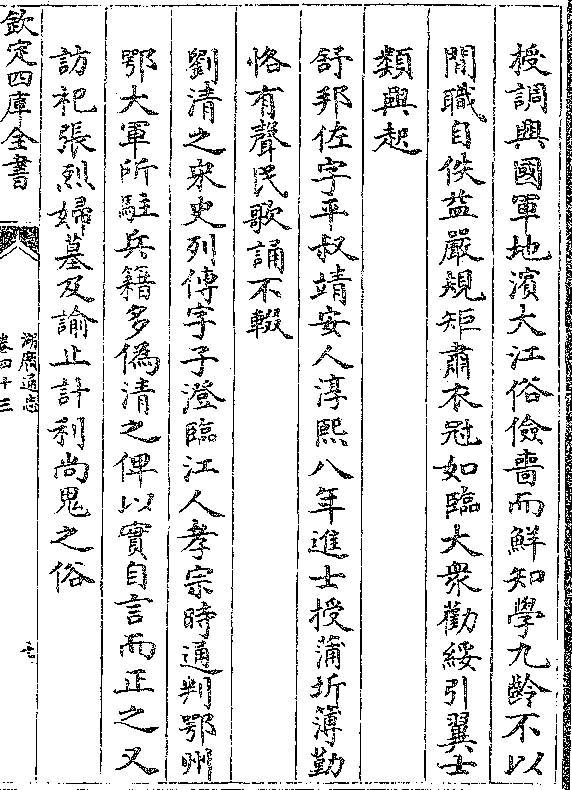 授調興國軍地濱大江俗儉嗇而鮮知學九齡不以
閒職自佚益嚴規矩肅衣冠如臨大衆勸綏引翼士
類興起
舒邦佐字平叔靖安人淳熙八年進士授蒲圻簿勤
恪有聲民歌誦不輟
劉清之宋史列傳字子澄臨江人孝宗時通判鄂州
鄂大軍所駐兵籍多偽清之俾以實自言而正之又
訪祀張烈婦墓及諭止計利尚鬼之俗
欽定四庫全書
湖廣通志
卷四十三